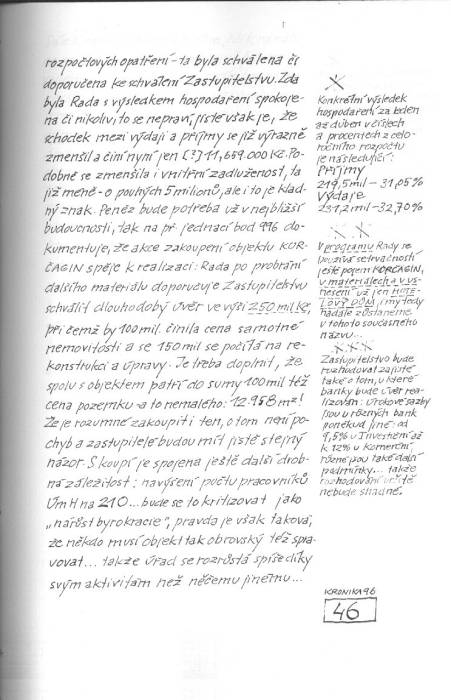 rozpočtových opatření - ta byla schválena či
doporučena ke schválení Zastupitelstvu. Zda
byla Rada s výsledkem hospodaření spokoje-
na či nikoliv, to se nepraví, jisté však je, že
schodek mezi výdaji a příjmy se již výrazně
zmenšil a činí nyní jen [?] 11,659.000 Kč. Po-
dobně se zmenšila i vnitřní zadluženost, ta
již méně - o pouhých 5 milionů, ale i to je klad-
ný znak. Peněz bude potřeba už v nejbližší
budoucnosti, tak na př. jednací bod 996 do-
kumentuje, že akce zakoupení objektu KOR-
ČAGIN spěje k realizaci: Rada po probrání
dalšího materiálu doporučuje Zastupitelstvu
schválit dlouhodobý úvěr ve výši 250 mil Kč,
při čemž by 100 mil. činila cena samotné
nemovitosti a se 150 mil se počítá na re-
konstrukci a úpravy. Je třeba doplnit, že
spolu s objektem patří do sumy 100 mil též
cena pozemku - a to nemalého: 12.958 m²!
Že je rozumné zakoupit i ten, o tom není po-
chyb a zastupitelé budou mít jistě stejný
názor. S koupí je spojena ještě další drob-
ná záležitost: navýšení počtu pracovníků
ÚmH na 210... bude se to kritizovat jako
„nárůst byrokracie", pravda je však taková,
že někdo musí objekt tak obrovský též spra-
vovat... takže úřad se rozrůstá spíše díky
svým aktivitám než něčemu jinému...
X
Konkrétní výsledek
hospodaření za leden
až duben v číslech
a procentech z celo-
ročního rozpočtu
je následující:
Příjmy
219,5 mil - 31,05%
Výdaje
231,2 mil - 32,70%
X X
V programu Rady se
používá setrvačností
ještě pojem KORČAGIN,
v materiálech a v ús-
nesení už jen HOTE-
LOVÝ DŮM, i my tedy
nadále zůstaneme
u tohoto současného
názvu...
XXX
Zastupitelstvo bude
rozhodovat zajisté
také o tom, u které
banky bude úvěr rea-
lizován: úrokové sazby
jsou u různých bank
poněkud jiné: od
9,5% u Investiční až
k 12% u Komerční,
různé jsou také další
podmínky... takže
rozhodování určitě
nebude snadné.
KRONIKA 96
46